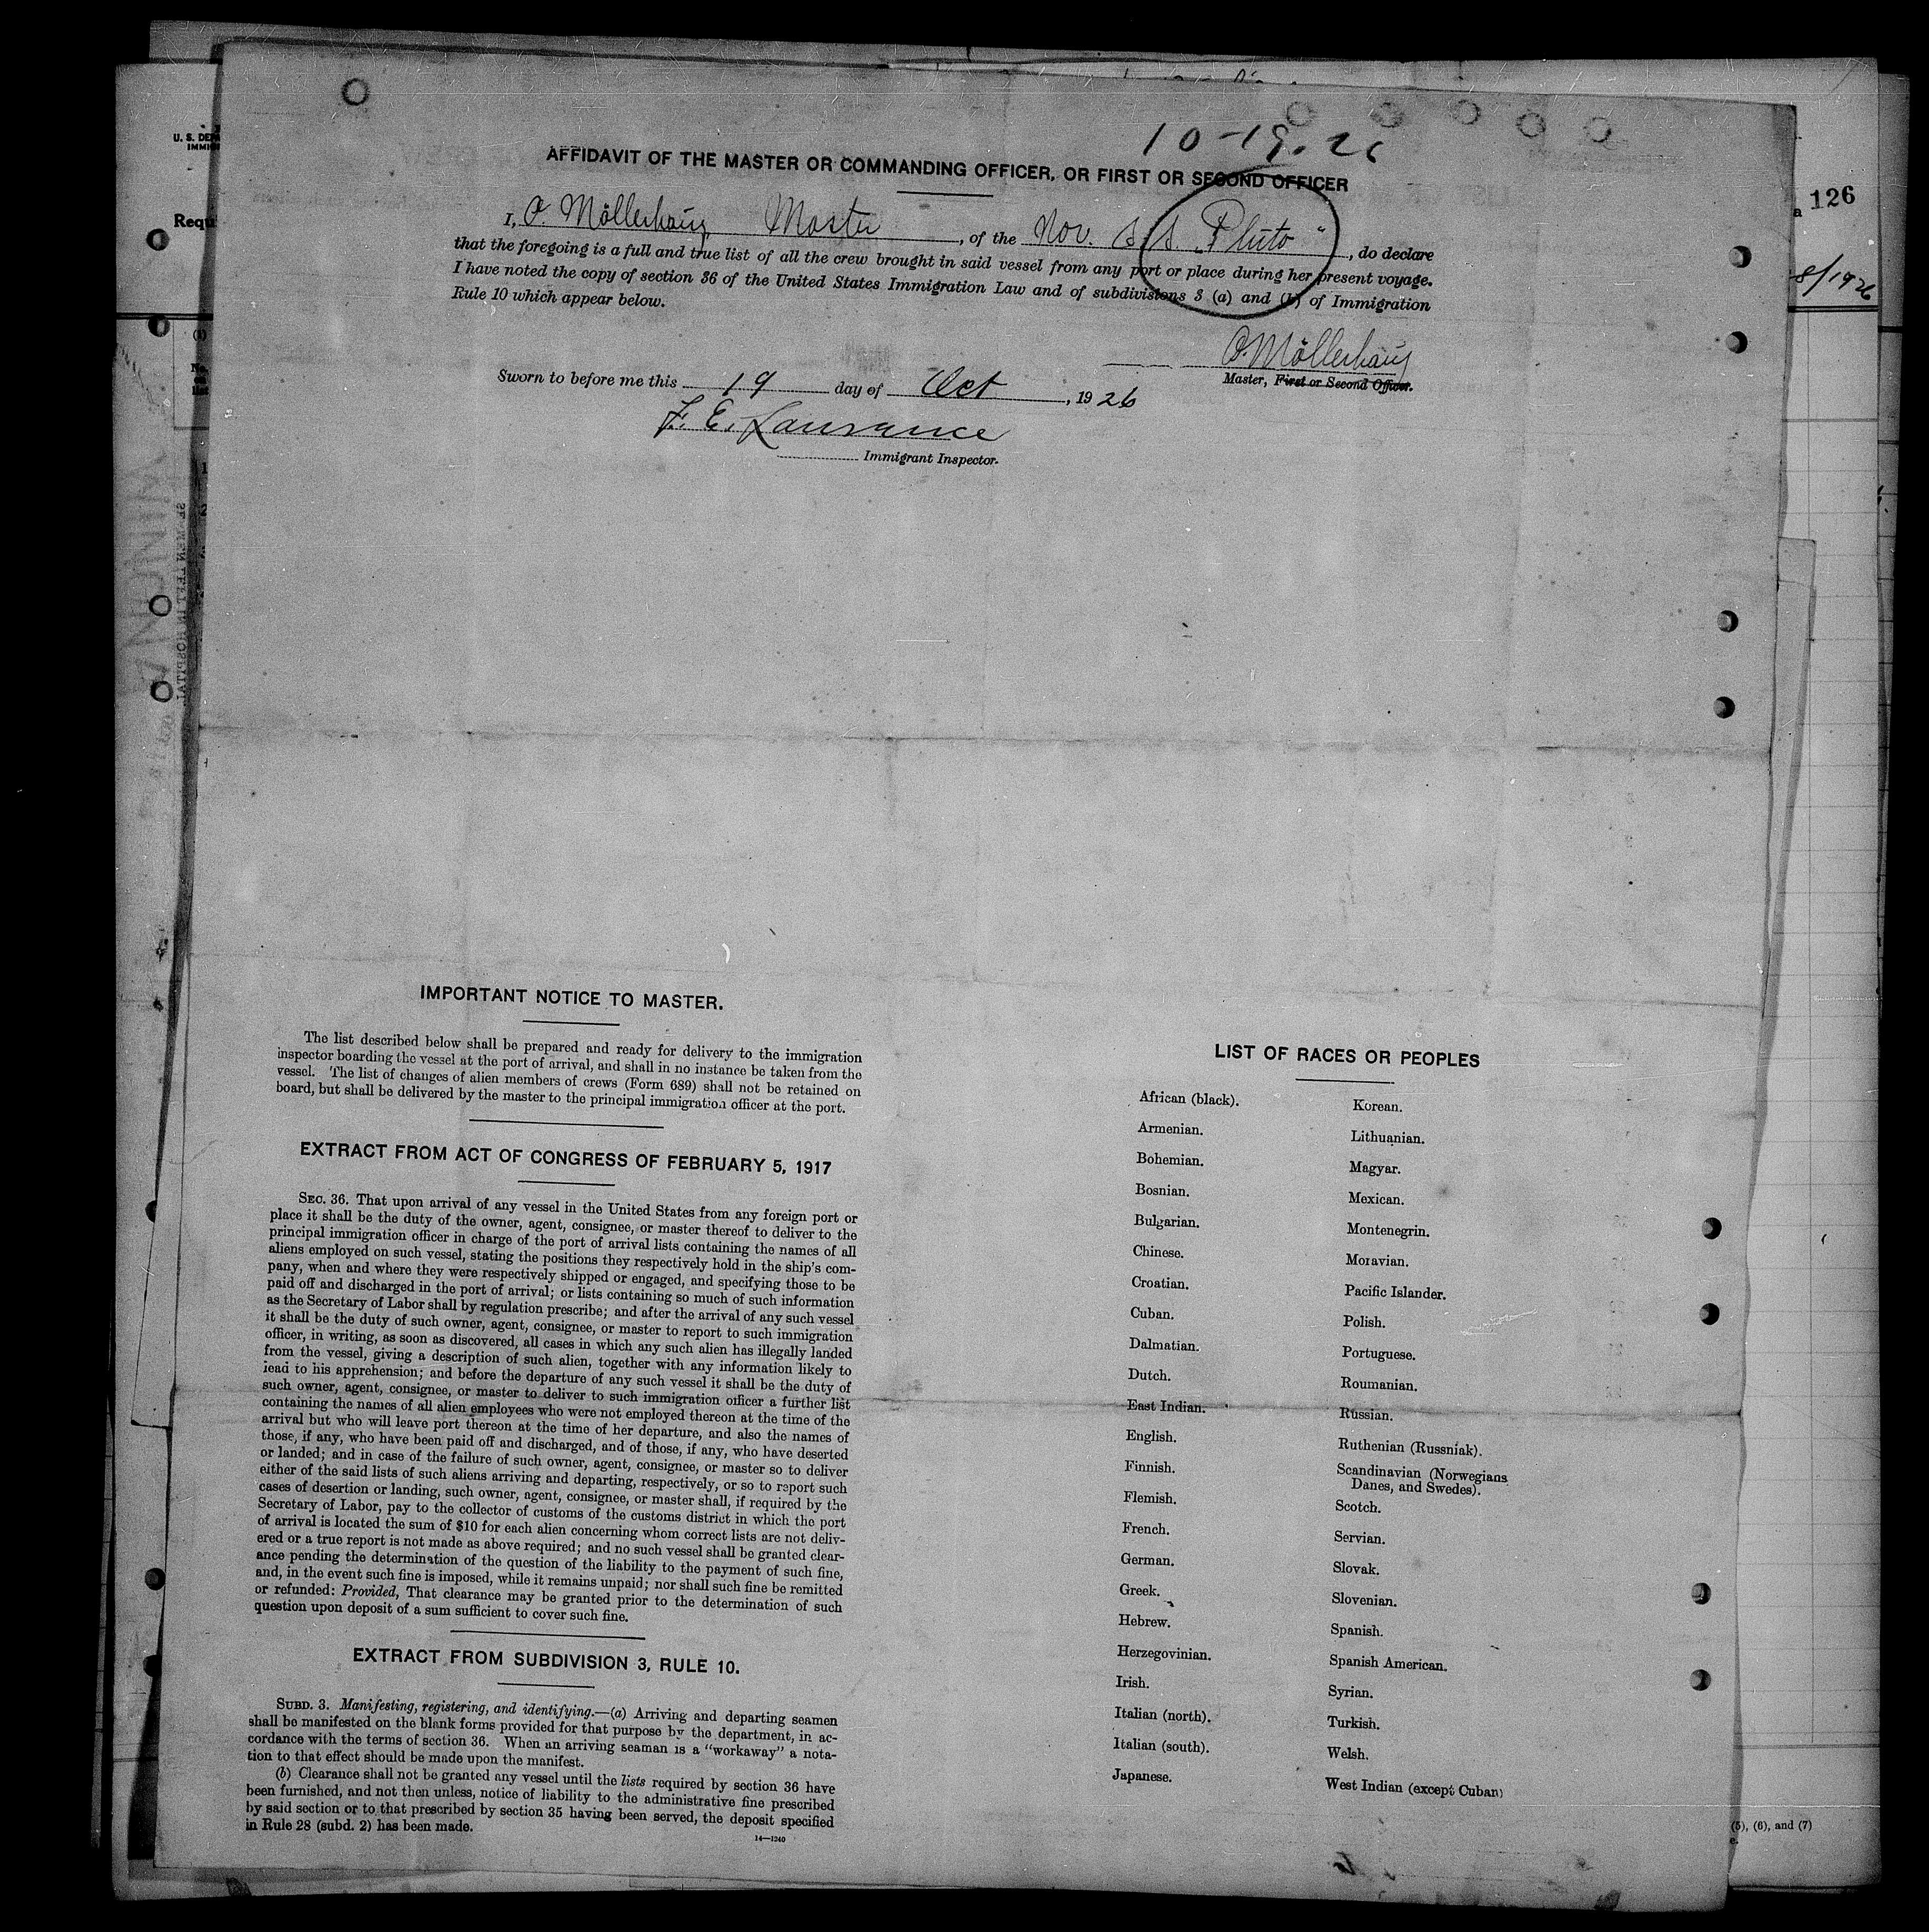 10-19-26
AFFIDAVIT OF THE MASTER OR COMMANDING OFFICER, OR FIRST OR SECOND OFFICER
I, O. Möllerhaug Master, of the Nor. S. S. "Pluto", do declare
that the foregoing is a full and true list of all the crew brought in said vessel from any port or place during her present voyage.
I have noted the copy of section 36 of the United States Immigration Law and of subdivisions 3 (a) and (b) of Immigration
Rule 10 which appear below.
O. Möllerhaug
Master, First or Second Officer.
Sworn to before me this 19 day of Oct, 1926
F. E. Lawrance
Immigrant Inspector.
IMPORTANT NOTICE TO MASTER.
The list described below shall be prepared and ready for delivery to the immigration
inspector boarding the vessel at the port of arrival, and shall in no instance be taken from the
vessel. The list of changes of alien members of crews (Form 689) shall not be retained on
board, but shall be delivered by the master to the principal immigration officer at the port.
EXTRACT FROM ACT OF CONGRESS OF FEBRUARY 5, 1917
SEC. 36. That upon arrival of any vessel in the United States from any foreign port or
place it shall be the duty of the owner, agent, consignee, or master thereof to deliver to the
principal immigration officer in charge of the port of arrival lists containing the names of all
aliens employed on such vessel, stating the positions they respectively hold in the ship's com-
pany, when and where they were respectively shipped or engaged, and specifying those to be
paid off and discharged in the port of arrival; or lists containing so much of such information
as the Secretary of Labor shall by regulation prescribe; and after the arrival of any such vessel
it shall be the duty of such owner, agent, consignee, or master to report to such immigration
officer, in writing, as soon as discovered, all cases in which any such alien has illegally landed
from the vessel, giving a description of such alien, together with any information likely to
lead to his apprehension; and before the departure of any such vessel it shall be the duty of
such owner, agent, consignee, or master to deliver to such immigration officer a further list
containing the names of all alien employees who were not employed thereon at the time of the
arrival but who will leave port thereon at the time of her departure, and also the names of
those, if any, who have been paid off and discharged, and of those, if any, who have deserted
or landed; and in case of the failure of such owner, agent, consignee, or master so to deliver
either of the said lists of such aliens arriving and departing, respectively, or so to report such
cases of desertion or landing, such owner, agent, consignee, or master shall, if required by the
Secretary of Labor, pay to the collector of customs of the customs district in which the port
of arrival is located the sum of $10 for each alien concerning whom correct lists are not deliv-
ered or a true report is not made as above required; and no such vessel shall be granted clear-
ance pending the determination of the question of the liability to the payment of such fine,
and, in the event such fine is imposed, while it remains unpaid; nor shall such fine be remitted
or refunded: Provided, That clearance may be granted prior to the determination of such
question upon deposit of a sum sufficient to cover such fine.
EXTRACT FROM SUBDIVISION 3, RULE 10.
SUBD. 3. Manifesting, registering, and identifying.—(a) Arriving and departing seamen
shall be manifested on the blank forms provided for that purpose by the department, in ac-
cordance with the terms of section 36. When an arriving seaman is a "workaway" a nota-
tion to that effect should be made upon the manifest.
(b) Clearance shall not be granted any vessel until the lists required by section 36 have
been furnished, and not then unless, notice of liability to the administrative fine prescribed
by said section or to that prescribed by section 35 having been served, the deposit specified
in Rule 28 (subd. 2) has been made.
14—1240
LIST OF RACES OR PEOPLES
African (black).
Armenian.
Bohemian.
Bosnian.
Bulgarian.
Chinese.
Croatian.
Cuban.
Dalmatian.
Dutch.
East Indian.
English.
Finnish.
Flemish.
French.
German.
Greek.
Hebrew.
Herzegovinian.
Irish.
Italian (north).
Italian (south).
Japanese.
Korean.
Lithuanian.
Magyar.
Mexican.
Montenegrin.
Moravian.
Pacific Islander.
Polish.
Portuguese.
Roumanian.
Russian.
Ruthenian (Russniak).
Scandinavian (Norwegians
Danes, and Swedes).
Scotch.
Servian.
Slovak.
Slovenian.
Spanish.
Spanish American.
Syrian.
Turkish.
Welsh.
West Indian (except Cuban)
126
8/1926
(5), (6), and (7)